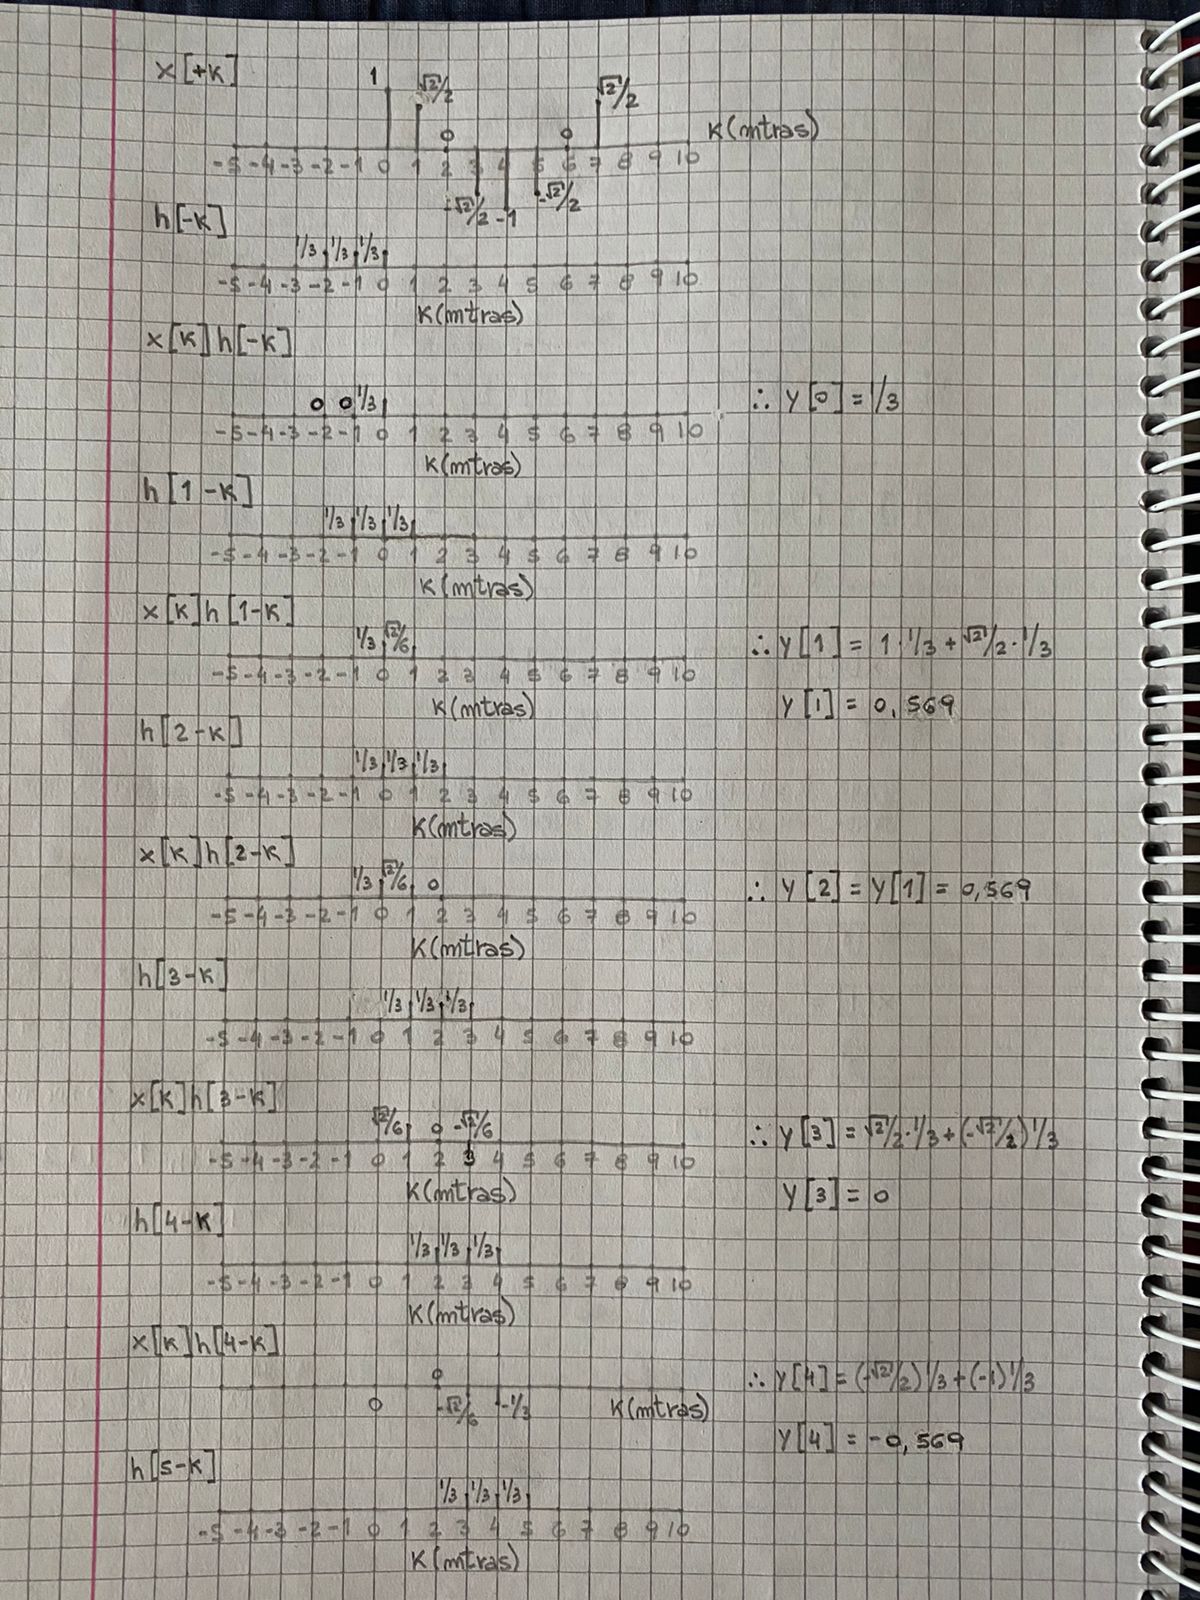 x[+k]
1 √2/2 0 0 √2/2
k(mtras)
-5 -4 -3 -2 -1 0 1 2 3 4 5 6 7 8 9 10
-√2/2 -1 -√2/2
h[-k]
1/3 1/3 1/3
-5 -4 -3 -2 -1 0 1 2 3 4 5 6 7 8 9 10
k(mtras)
x[k]h[-k]
0 0 1/3
∴ y[0] = 1/3
-5 -4 -3 -2 -1 0 1 2 3 4 5 6 7 8 9 10
k(mtras)
h[1-k]
1/3 1/3 1/3
-5 -4 -3 -2 -1 0 1 2 3 4 5 6 7 8 9 10
k(mtras)
x[k]h[1-k]
1/3 √2/6
∴ y[1] = 1·1/3 + √2/2·1/3
-5 -4 -3 -2 -1 0 1 2 3 4 5 6 7 8 9 10
k(mtras)
y[1] = 0,569
h[2-k]
1/3 1/3 1/3
-5 -4 -3 -2 -1 0 1 2 3 4 5 6 7 8 9 10
k(mtras)
x[k]h[2-k]
1/3 √2/6 0
∴ y[2] = y[1] = 0,569
-5 -4 -3 -2 -1 0 1 2 3 4 5 6 7 8 9 10
k(mtras)
h[3-k]
1/3 1/3 1/3
-5 -4 -3 -2 -1 0 1 2 3 4 5 6 7 8 9 10
x[k]h[3-k]
√2/6 0 -√2/6
∴ y[3] = √2/2·1/3 + (-√2/2)1/3
-5 -4 -3 -2 -1 0 1 2 3 4 5 6 7 8 9 10
k(mtras)
y[3] = 0
h[4-k]
1/3 1/3 1/3
-5 -4 -3 -2 -1 0 1 2 3 4 5 6 7 8 9 10
k(mtras)
x[k]h[4-k]
0
∴ y[4] = (-√2/2)1/3 + (-1)1/3
0 -√2/6 -1/3 k(mtras)
y[4] = -0,569
h[5-k]
1/3 1/3 1/3
-5 -4 -3 -2 -1 0 1 2 3 4 5 6 7 8 9 10
k(mtras)